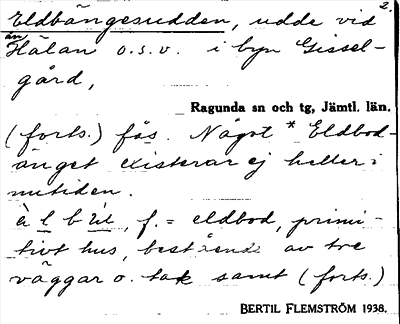 2.
Eldbängesudden, udde vid
än Hälan o.s.v. i byn Gissel-
gård,
Ragunda sn och tg, Jämtl. län.
(forts.) fös. Något * Eldbod-
änget existerar ej heller i
nutiden.
f. = eldbod, primi-
tivt hus, bestående av tre
väggar o. tak samt (forts.)
BERTIL FLEMSTRÖM 1938.